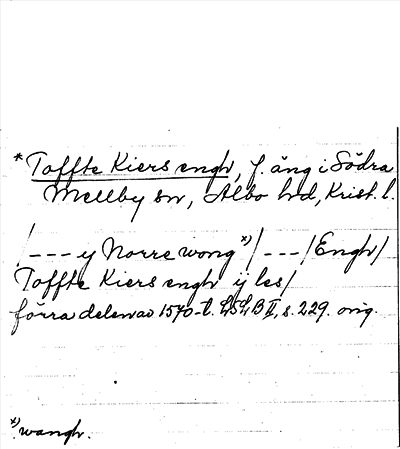 * Toffte Kiers engh, f. äng i Södra
Mellby sn, Albo hd, Krist. l.
/--- y Norre wong x)/---/Engh/
Toffte Kiers engh ÿ les/
förra delen av 1570-t. LSLB II, s. 229. orig.
x) wangh.